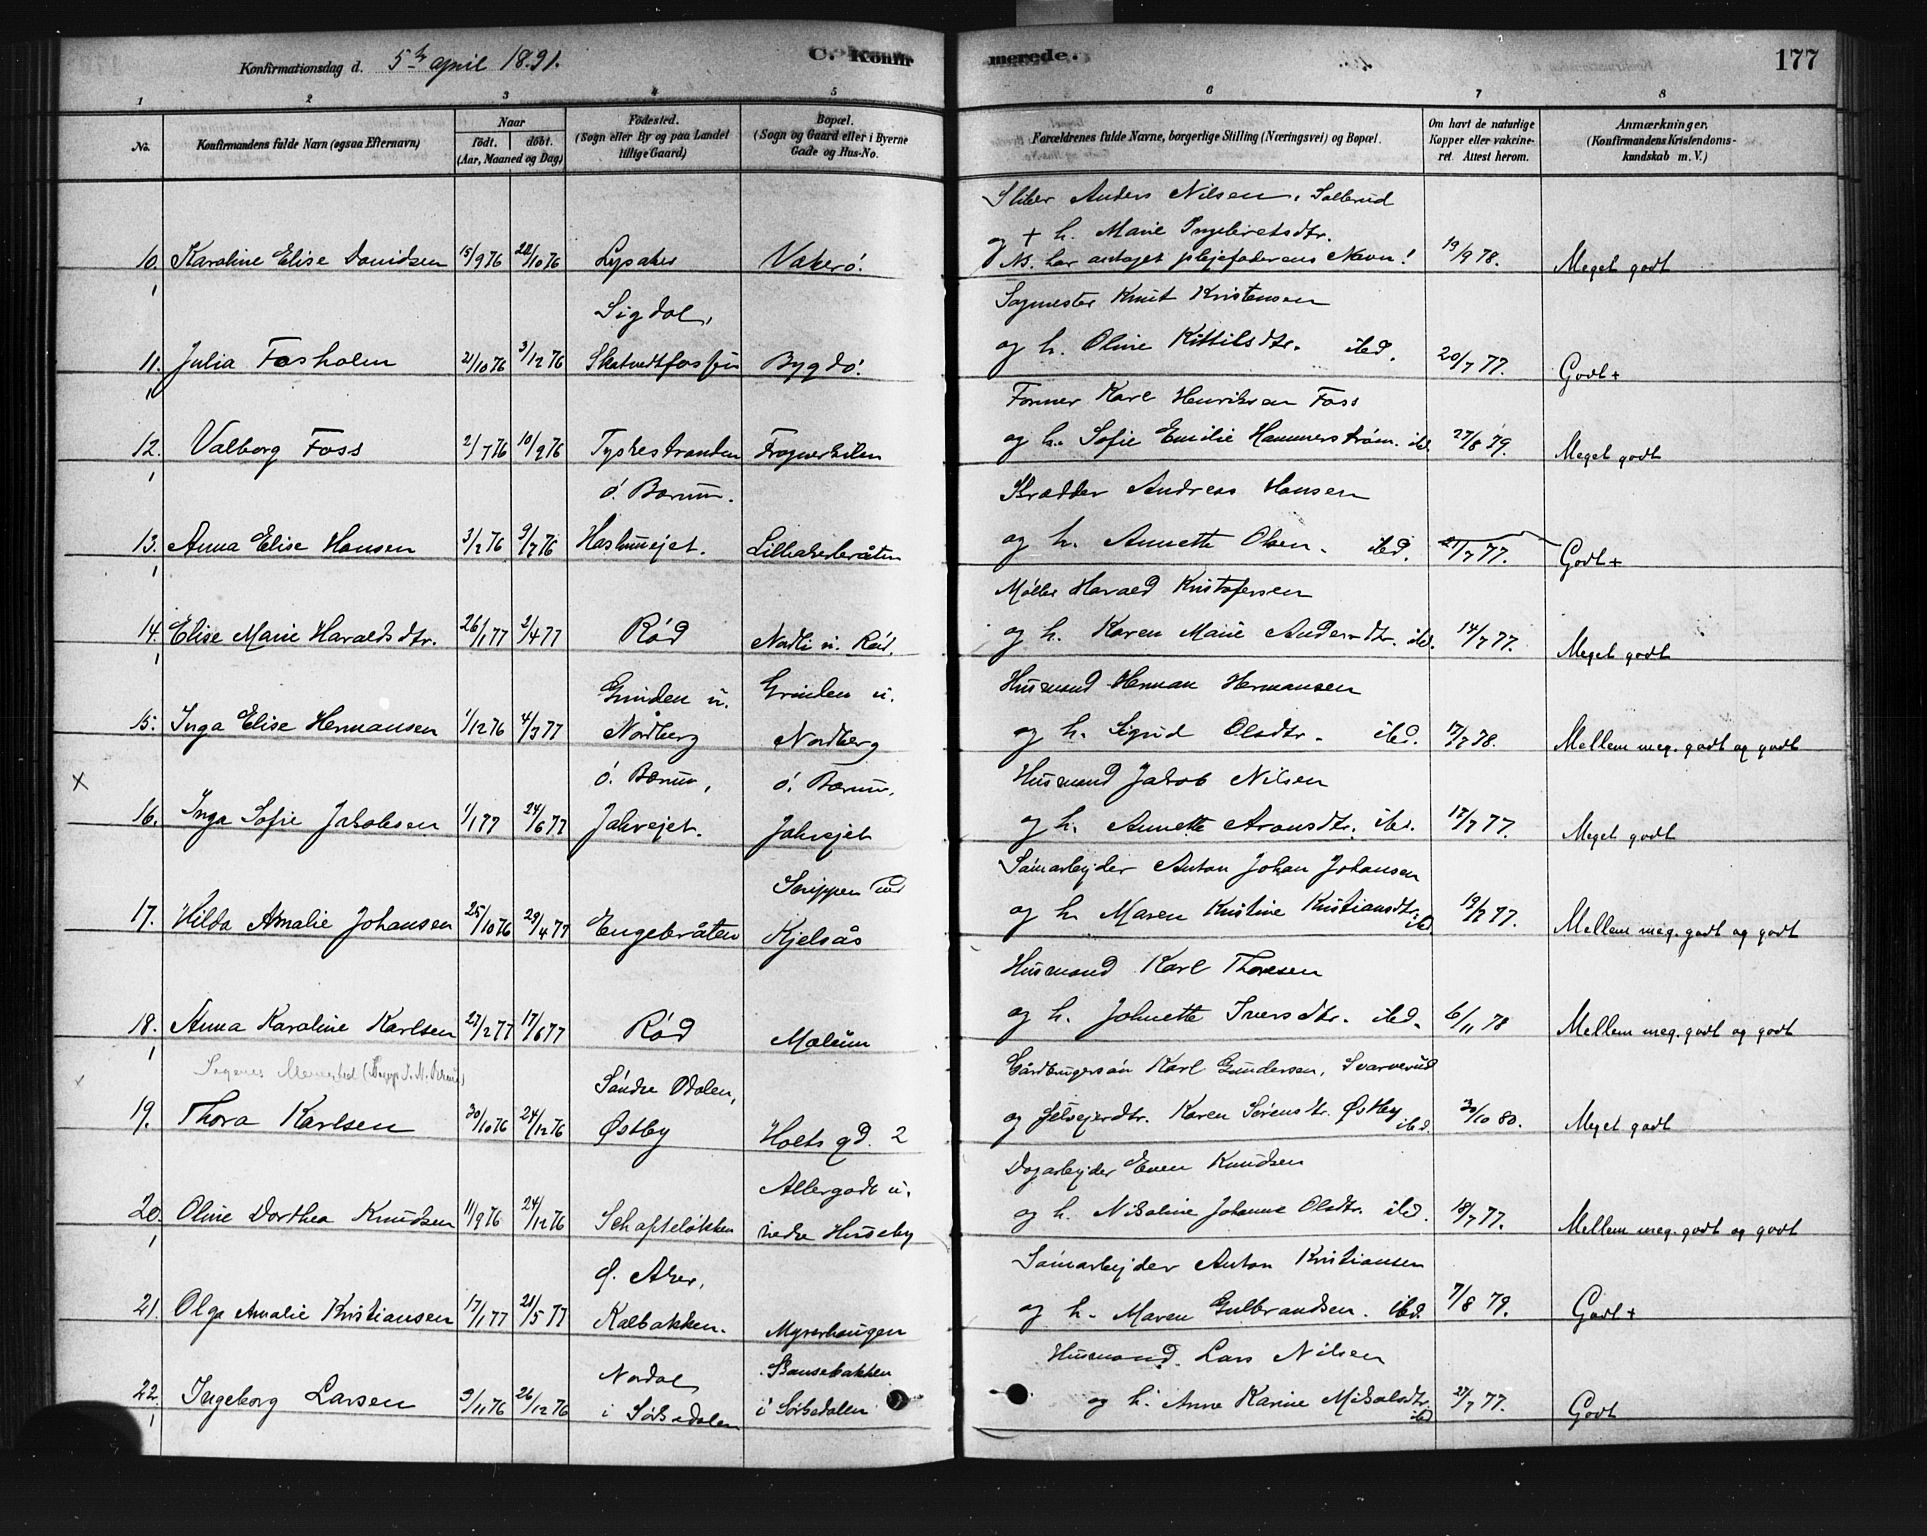 Konfirmationsdag d. 5te april 1891.
C. Konfirmerede.
177
1 2 3 4 5 6 7 8
No.
Konfirmandens fulde Navn (ogsaa Efternavn)
Naar
født. døbt.
(Aar, Maaned og Dag)
Fødested.
(Sogn eller By og paa Landet
tillige Gaard)
Bopæl.
(Sogn og Gaard eller i Byerne
Gade og Hus-No.
Forældrenes fulde Navne, borgerlige Stilling (Næringsvei) og Bopæl.
Om havt de naturlige
Kopper eller vakcine-
ret. Attest herom.
Anmærkninger.
(Konfirmandens Kristendoms-
kundskab m. V.)
Sliber Anders Nilsen, Sollerud
og + h. Marie Ingebretsdtr.
10. Karoline Elise Davidsen 15/9 76 22/10 76 Lysaker Vækerö. NB. har antaget plejefaderens Navn! 19/9 78. Meget godt
Sigdal, Sagmester Knut Kristensen
11. Julia Fosholm 21/10 76 3/12 76 Skatvedtfossen Bygdö. og h. Oline Kittilsdtr. ibd. 20/7 77. Godt+
Former Karl Henriksen Foss
12. Valborg Foss 2/7 76 10/9 76 Tyskestranden Frognerkilen og h. Sofie Emilie Hammerström. ibd. 27/8 79. Meget godt
ö. Bærum. Skrædder Andreas Hansen
13. Anna Elise Hansen 3/2 76 9/7 76 Haslumejet. Lilleakerbråten og h. Annette Olsen. ibd. 21/7 77. Godt+
Møller Harald Kristofersen
14. Elise Marie Haraldsdtr. 26/1 77 2/4 77 Röd Nordli u. Röd. og h. Karen Marie Andersdtr. ibd. 14/7 77. Meget godt
Grinden u. Grinden u. Husmand Herman Hermansen
15. Inga Elise Hermansen 1/12 76 4/3 77 Nordberg Nordberg og h. Sigrid Olsdtr. ibd. 17/7 78. Mellem meg. godt og godt
x ö. Bærum, ö. Bærum, Husmand Jakob Nilsen
16. Inga Sofie Jakobsen 1/1 77 24/6 77 Jahrejet. Jahrejet og h. Annette Aronsdtr. ibd. 17/7 77. Meget godt
ved Sömarbejder Anton Johan Johansen
17. Hilda Amalie Johansen 25/10 76 29/4 77 Engebråten Kjelsås og h. Maren Kristine Kristiansdtr. ibd. 19/7 77. Mellem meg. godt og godt
Husmand Karl Thoresen
18. Anna Karoline Karlsen 27/2 77 17/6 77 Röd Mælum og h. Johnette Iversdtr. ibd. 6/11 78 Mellem meg. godt og godt
Söndre Odalen, Gårdbrugersön Karl Gundersen, Svarverud
19. Thora Karlsen 30/10 76 24/12 76 Østby Holts gd. 2 og Selvejerdtr. Karen Sörensdtr. Østby ibd. 30/10 80. Meget godt
Allergodt u. Dagarbejder Even Knudsen
20. Oline Dorthea Knudsen 11/9 76 24/12 76 Schafteløkken nedre Huseby og h. Nikoline Johanne Olsdtr. ibd. 18/7 77. Mellem meg. godt og godt
Ø. Aker, Sömarbejder Anton Kristiansen
21. Olga Amalie Kristiansen 17/1 77 21/5 77 Kalbakken. Myrerhaugen og h. Maren Gulbrandsen. ibd. 7/8 79. Godt+
Nordal Skansebakken Husmand Lars Nilsen
22. Ingeborg Larsen 9/11 76 26/12 76 i Sörkedalen i Sörkedalen og h. Anne Karine Mikalsdtr. ibd 27/7 77. Godt